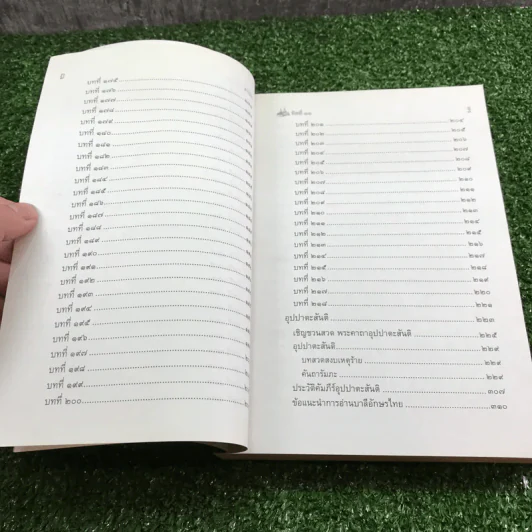 บทที่ ๑๗๕
บทที่ ๑๗๖
บทที่ ๑๗๗
บทที่ ๑๗๘
บทที่ ๑๗๙
บทที่ ๑๘๐
บทที่ ๑๘๑
บทที่ ๑๘๒
บทที่ ๑๘๓
บทที่ ๑๘๔
บทที่ ๑๘๕
บทที่ ๑๘๖
บทที่ ๑๘๗
บทที่ ๑๘๘
บทที่ ๑๘๙
บทที่ ๑๙๐
บทที่ ๑๙๑
บทที่ ๑๙๒
บทที่ ๑๙๓
บทที่ ๑๙๔
บทที่ ๑๙๕
บทที่ ๑๙๖
บทที่ ๑๙๗
บทที่ ๑๙๘
บทที่ ๑๙๙
บทที่ ๒๐๐
บทที่ ๒๐๑ ๒๐๔
บทที่ ๒๐๒ ๒๐๕
บทที่ ๒๐๓ ๒๐๖
บทที่ ๒๐๔ ๒๐๗
บทที่ ๒๐๕ ๒๐๘
บทที่ ๒๐๖ ๒๐๙
บทที่ ๒๐๗ ๒๑๐
บทที่ ๒๐๘ ๒๑๑
บทที่ ๒๐๙ ๒๑๒
บทที่ ๒๑๐ ๒๑๓
บทที่ ๒๑๑ ๒๑๔
บทที่ ๒๑๒ ๒๑๕
บทที่ ๒๑๓ ๒๑๖
บทที่ ๒๑๔ ๒๑๗
บทที่ ๒๑๕ ๒๑๘
บทที่ ๒๑๖ ๒๑๙
บทที่ ๒๑๗ ๒๒๐
บทที่ ๒๑๘ ๒๒๑
อุปปาตะสันติ ๒๒๓
เชิญชวนสวด พระคาถาอุปปาตะสันติ ๒๒๕
อุปปาตะสันติ ๒๒๙
บทสวดสงบเหตุร้าย ๒๒๙
คันถารัมภะ ๒๒๙
ประวัติคัมภีร์อุปปาตะสันติ ๓๐๗
ข้อแนะนำการอ่านบาลีอักษรไทย ๓๑๐